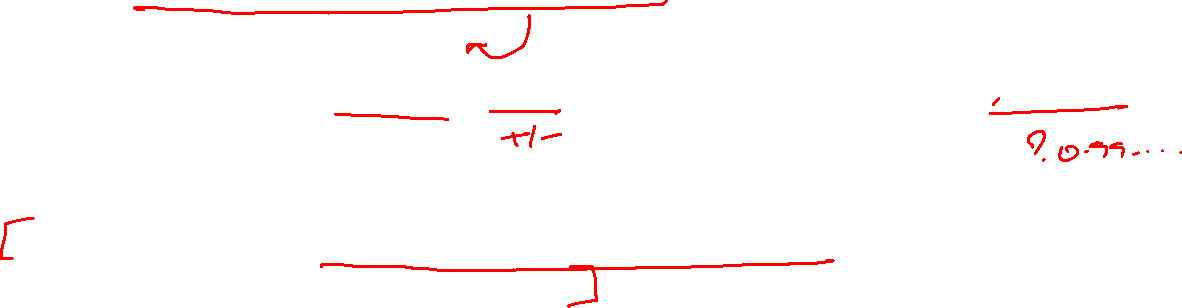 +/-
?. 0.99.....